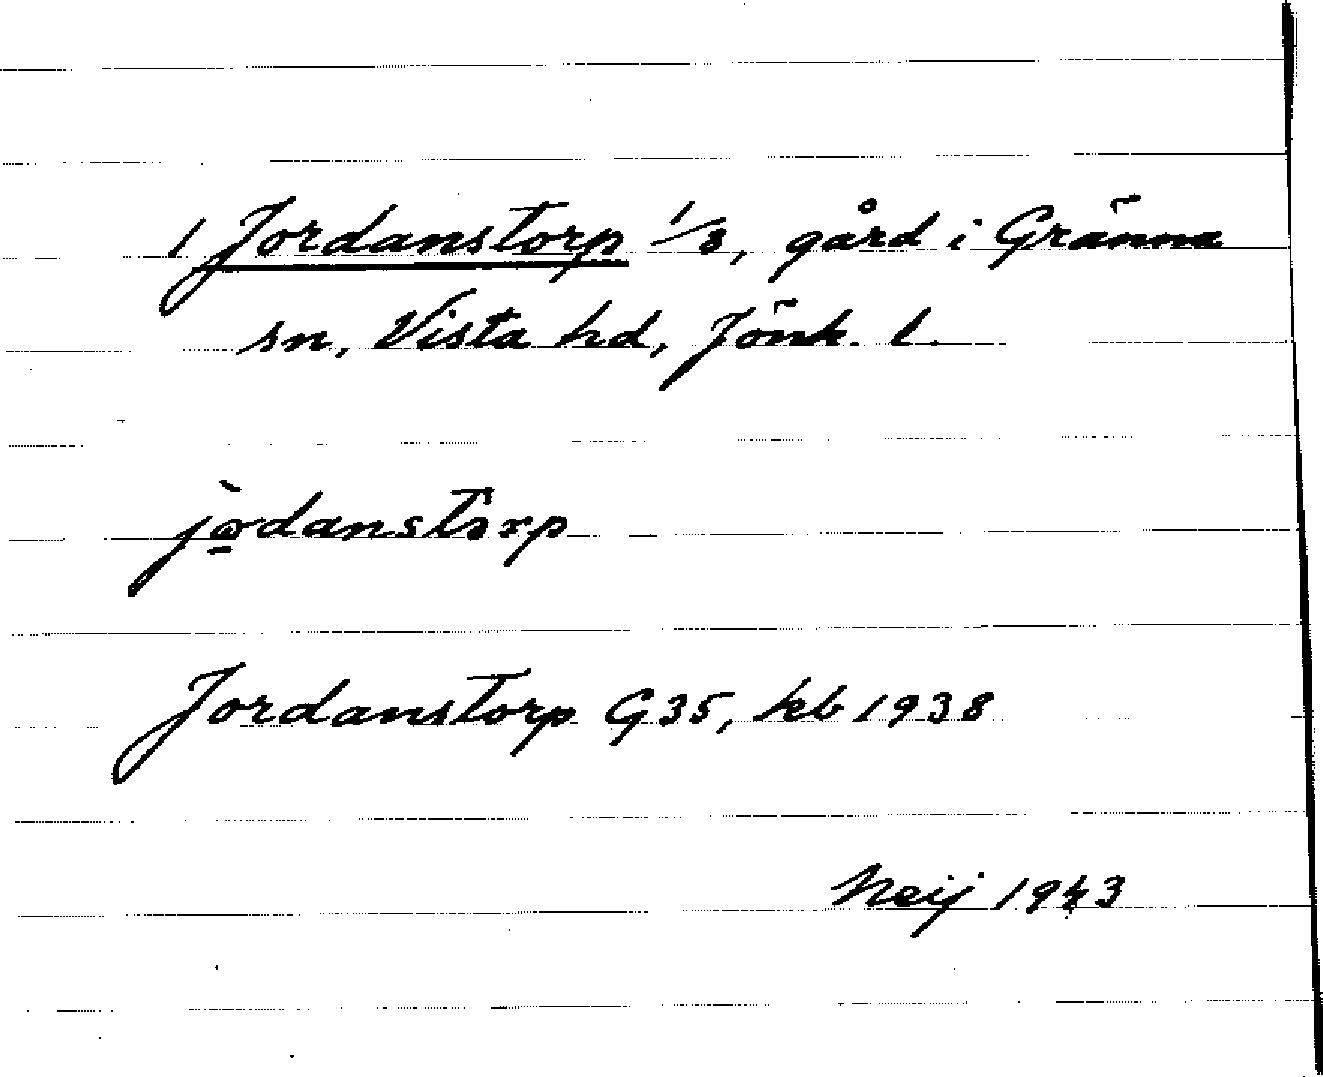 1 Jordanstorp 1/8, gård i Gränna
sn, Vista hd, Jönk. l.
jò̲rdanstòrp
Jordanstorp G35, kb 1938
Neij 1943